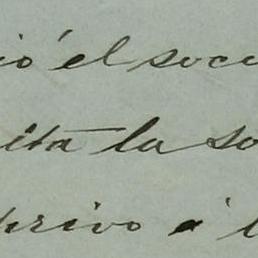 ió el socu
ita la so
privo á l